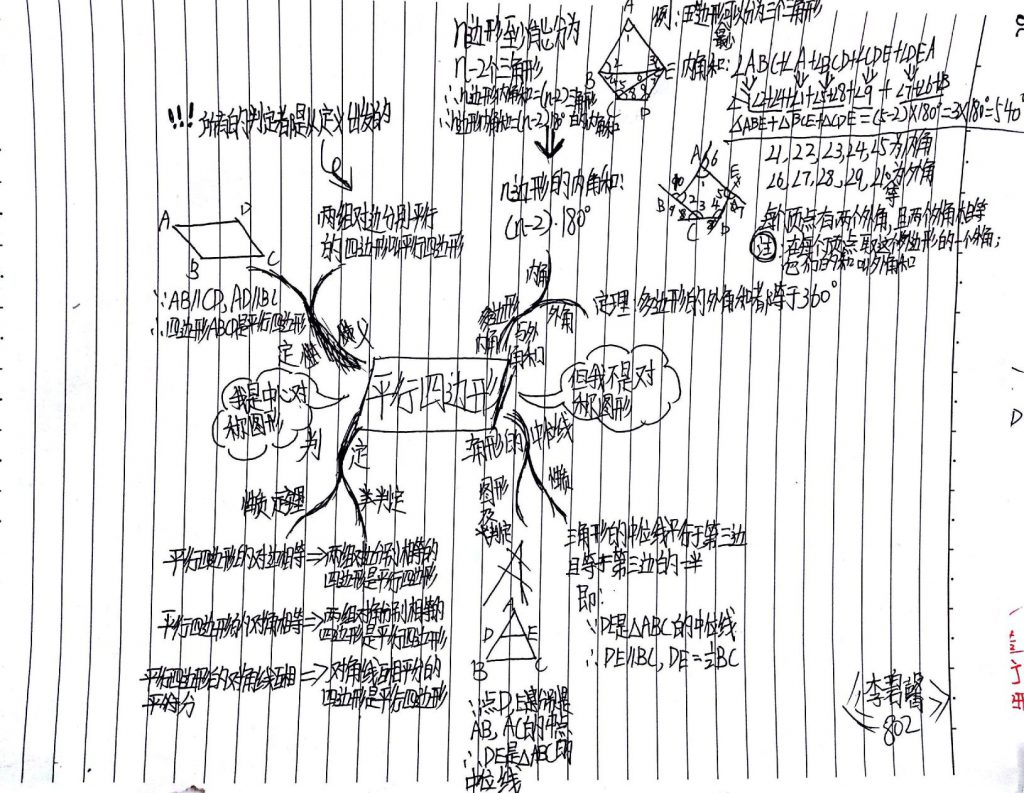 n边形至少能分为
n-2个三角形
∴n边形内角和=(n-2)三角形的内角和
∴n边形内角和=(n-2)180°
n边形的内角和:
(n-2)·180°
A
B
C
D
E
例:五边形可以分为三个三角形
最少
内角和:∠ABC+∠A+∠BCD+∠CDE+∠DEA
△ABE+△BCE+△CDE=(5-2)×180°=3×180°=540°
∠1,∠2,∠3,∠4,∠5为内角
∠6,∠7,∠8,∠9,∠10为外角
等
每个顶点有两个外角,且两个外角相等
注:在每个顶点取这个多边形的一个外角;
它们的和叫外角和
!!! 所有的判定都是从定义出发的
两组对边分别平行
的四边形叫平行四边形
A
D
B
C
∵AB∥CD, AD∥BC
∴四边形ABCD是平行四边形
定义
内角
外角
多边形
内角
与外
角和
定理:多边形的外角和都等于360°
平行四边形
我是中心对
称图形
但我不是对
称图形
判定
性质定理
判定
三角形的中位线
图形
及
判定
性质
平行四边形的对边相等⇒两组对边分别相等的
四边形是平行四边形
平行四边形的对角相等⇒两组对角分别相等的
四边形是平行四边形
平行四边形的对角线互相
平分
⇒对角线互相平分的
四边形是平行四边形
D
E
B
C
∵点D,E是分别是
AB, AC的中点
∴DE是△ABC的
中位线
三角形的中位线平行于第三边
且等于第三边的一半
即:
∵DE是△ABC的中位线
∴DE∥BC, DE=½BC
802
D